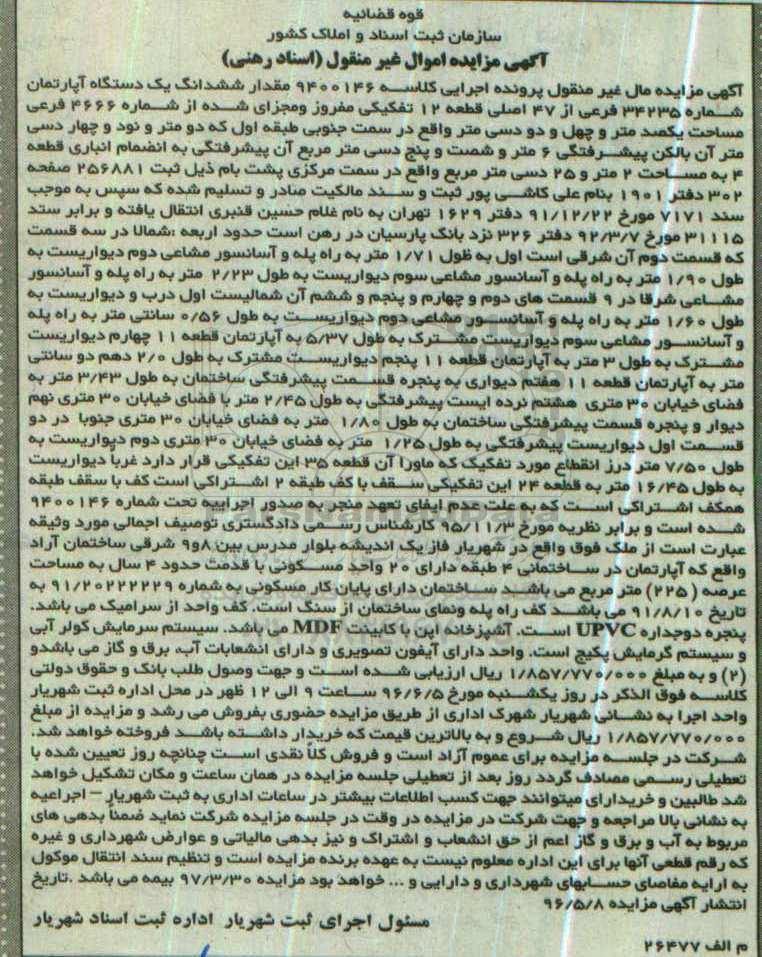 قوه قضائیه
سازمان ثبت اسناد و املاک کشور
آگهی مزایده اموال غیر منقول (اسناد رهنی)
آگهی مزایده مال غیر منقول پرونده اجرایی کلاسه ۹۴۰۰۱۴۶ مقدار ششدانگ یک دستگاه آپارتمان
شماره ۳۴۲۳۵ فرعی از ۴۷ اصلی قطعه ۱۲ تفکیکی مفروز ومجزای شده از شماره ۴۶۶۶ فرعی
مساحت یکصد متر و چهل و دو دسی متر واقع در سمت جنوبی طبقه اول که دو متر و نود و چهار دسی
متر آن بالکن پیشرفتگی ۶ متر و شصت و پنج دسی متر مربع آن پیشرفتگی به انضمام انباری قطعه
۴ به مساحت ۲ متر و ۲۵ دسی متر مربع واقع در سمت مرکزی پشت بام ذیل ثبت ۲۵۶۸۸۱ صفحه
۳۰۲ دفتر ۱۹۰۱ بنام علی کاشی پور ثبت و سند مالکیت صادر و تسلیم شده که سپس به موجب
سند ۷۱۷۱ مورخ ۹۱/۱۲/۲۲ دفتر ۱۶۲۹ تهران به نام غلام حسین قنبری انتقال یافته و برابر سند
۳۱۱۱۵ مورخ ۹۲/۳/۷ دفتر ۳۲۶ نزد بانک پارسیان در رهن است حدود اربعه :شمالا در سه قسمت
که قسمت دوم آن شرقی است اول به طول ۱/۷۱ متر به راه پله و آسانسور مشاعی دوم دیواریست به
طول ۱/۹۰ متر به راه پله و آسانسور مشاعی سوم دیواریست به طول ۲/۲۳ متر به راه پله و آسانسور
مشاعی شرقا در ۹ قسمت های دوم و چهارم و پنجم و ششم آن شمالیست اول درب و دیواریست به
طول ۱/۶۰ متر به راه پله و آسانسور مشاعی دوم دیواریست به طول ۰/۵۶ سانتی متر به راه پله
و آسانسور مشاعی سوم دیواریست مشترک به طول ۵/۳۷ به آپارتمان قطعه ۱۱ چهارم دیواریست
مشترک به طول ۳ متر به آپارتمان قطعه ۱۱ پنجم دیواریست مشترک به طول ۲/۰ دهم دو سانتی
متر به آپارتمان قطعه ۱۱ هفتم دیواری به پنجره قسمت پیشرفتگی ساختمان به طول ۳/۴۳ متر به
فضای خیابان ۳۰ متری هشتم نرده ایست پیشرفتگی به طول ۲/۴۵ متر با فضای خیابان ۳۰ متری نهم
دیوار و پنجره قسمت پیشرفتگی ساختمان به طول ۱/۸۰ متر به فضای خیابان ۳۰ متری جنوبا در دو
قسمت اول دیواریست پیشرفتگی به طول ۱/۲۵ متر به فضای خیابان ۳۰ متری دوم دیواریست به
طول ۷/۵۰ متر درز انقطاع مورد تفکیک که ماورا آن قطعه ۳۵ این تفکیکی قرار دارد غرباً دیواریست
به طول ۱۶/۴۵ متر به قطعه ۲۴ این تفکیکی سقف با کف طبقه ۲ اشتراکی است کف با سقف طبقه
همکف اشتراکی است که به علت عدم ایفای تعهد منجر به صدور اجراییه تحت شماره ۹۴۰۰۱۴۶
شده است و برابر نظریه مورخ ۹۵/۱۱/۳ کارشناس رسمی دادگستری توصیف اجمالی مورد وثیقه
عبارت است از ملک فوق واقع در شهریار فاز یک اندیشه بلوار مدرس بین ۸و۹ شرقی ساختمان آراد
واقع که آپارتمان در ساختمانی ۴ طبقه دارای ۲۰ واحد مسکونی با قدمت حدود ۴ سال به مساحت
عرصه (۲۲۵) متر مربع می باشد ساختمان دارای پایان کار مسکونی به شماره ۹۱/۲۰۲۲۲۲۲۹ به
تاریخ ۹۱/۸/۱۰ می باشد کف راه پله ونمای ساختمان از سنگ است. کف واحد از سرامیک می باشد.
پنجره دوجداره UPVC است. آشپزخانه اپن با کابینت MDF می باشد. سیستم سرمایش کولر آبی
و سیستم گرمایش پکیج است. واحد دارای آیفون تصویری و دارای انشعابات آب، برق و گاز می باشدو
(۲) و به مبلغ ۱/۸۵۷/۷۷۰/۰۰۰ ریال ارزیابی شده است و جهت وصول طلب بانک و حقوق دولتی
کلاسه فوق الذکر در روز یکشنبه مورخ ۹۶/۶/۵ ساعت ۹ الی ۱۲ ظهر در محل اداره ثبت شهریار
واحد اجرا به نشانی شهریار شهرک اداری از طریق مزایده حضوری بفروش می رشد و مزایده از مبلغ
۱/۸۵۷/۷۷۰/۰۰۰ ریال شروع و به بالاترین قیمت که خریدار داشته باشد فروخته خواهد شد.
شرکت در جلسه مزایده برای عموم آزاد است و فروش کلاً نقدی است چنانچه روز تعیین شده با
تعطیلی رسمی مصادف گردد روز بعد از تعطیلی جلسه مزایده در همان ساعت و مکان تشکیل خواهد
شد طالبین و خریدارای میتوانند جهت کسب اطلاعات بیشتر در ساعات اداری به ثبت شهریار – اجراعیه
به نشانی بالا مراجعه و جهت شرکت در مزایده در وقت در جلسه مزایده شرکت نماید ضمناً بدهی های
مربوط به آب و برق و گاز اعم از حق انشعاب و اشتراک و نیز بدهی مالیاتی و عوارض شهرداری و غیره
که رقم قطعی آنها برای این اداره معلوم نیست به عهده برنده مزایده است و تنظیم سند انتقال موکول
به ارایه مفاصای حسابهای شهرداری و دارایی و ... خواهد بود مزایده ۹۷/۳/۳۰ بیمه می باشد .تاریخ
انتشار آگهی مزایده ۹۶/۵/۸
مسئول اجرای ثبت شهریار اداره ثبت اسناد شهریار
م الف ۲۶۴۷۷